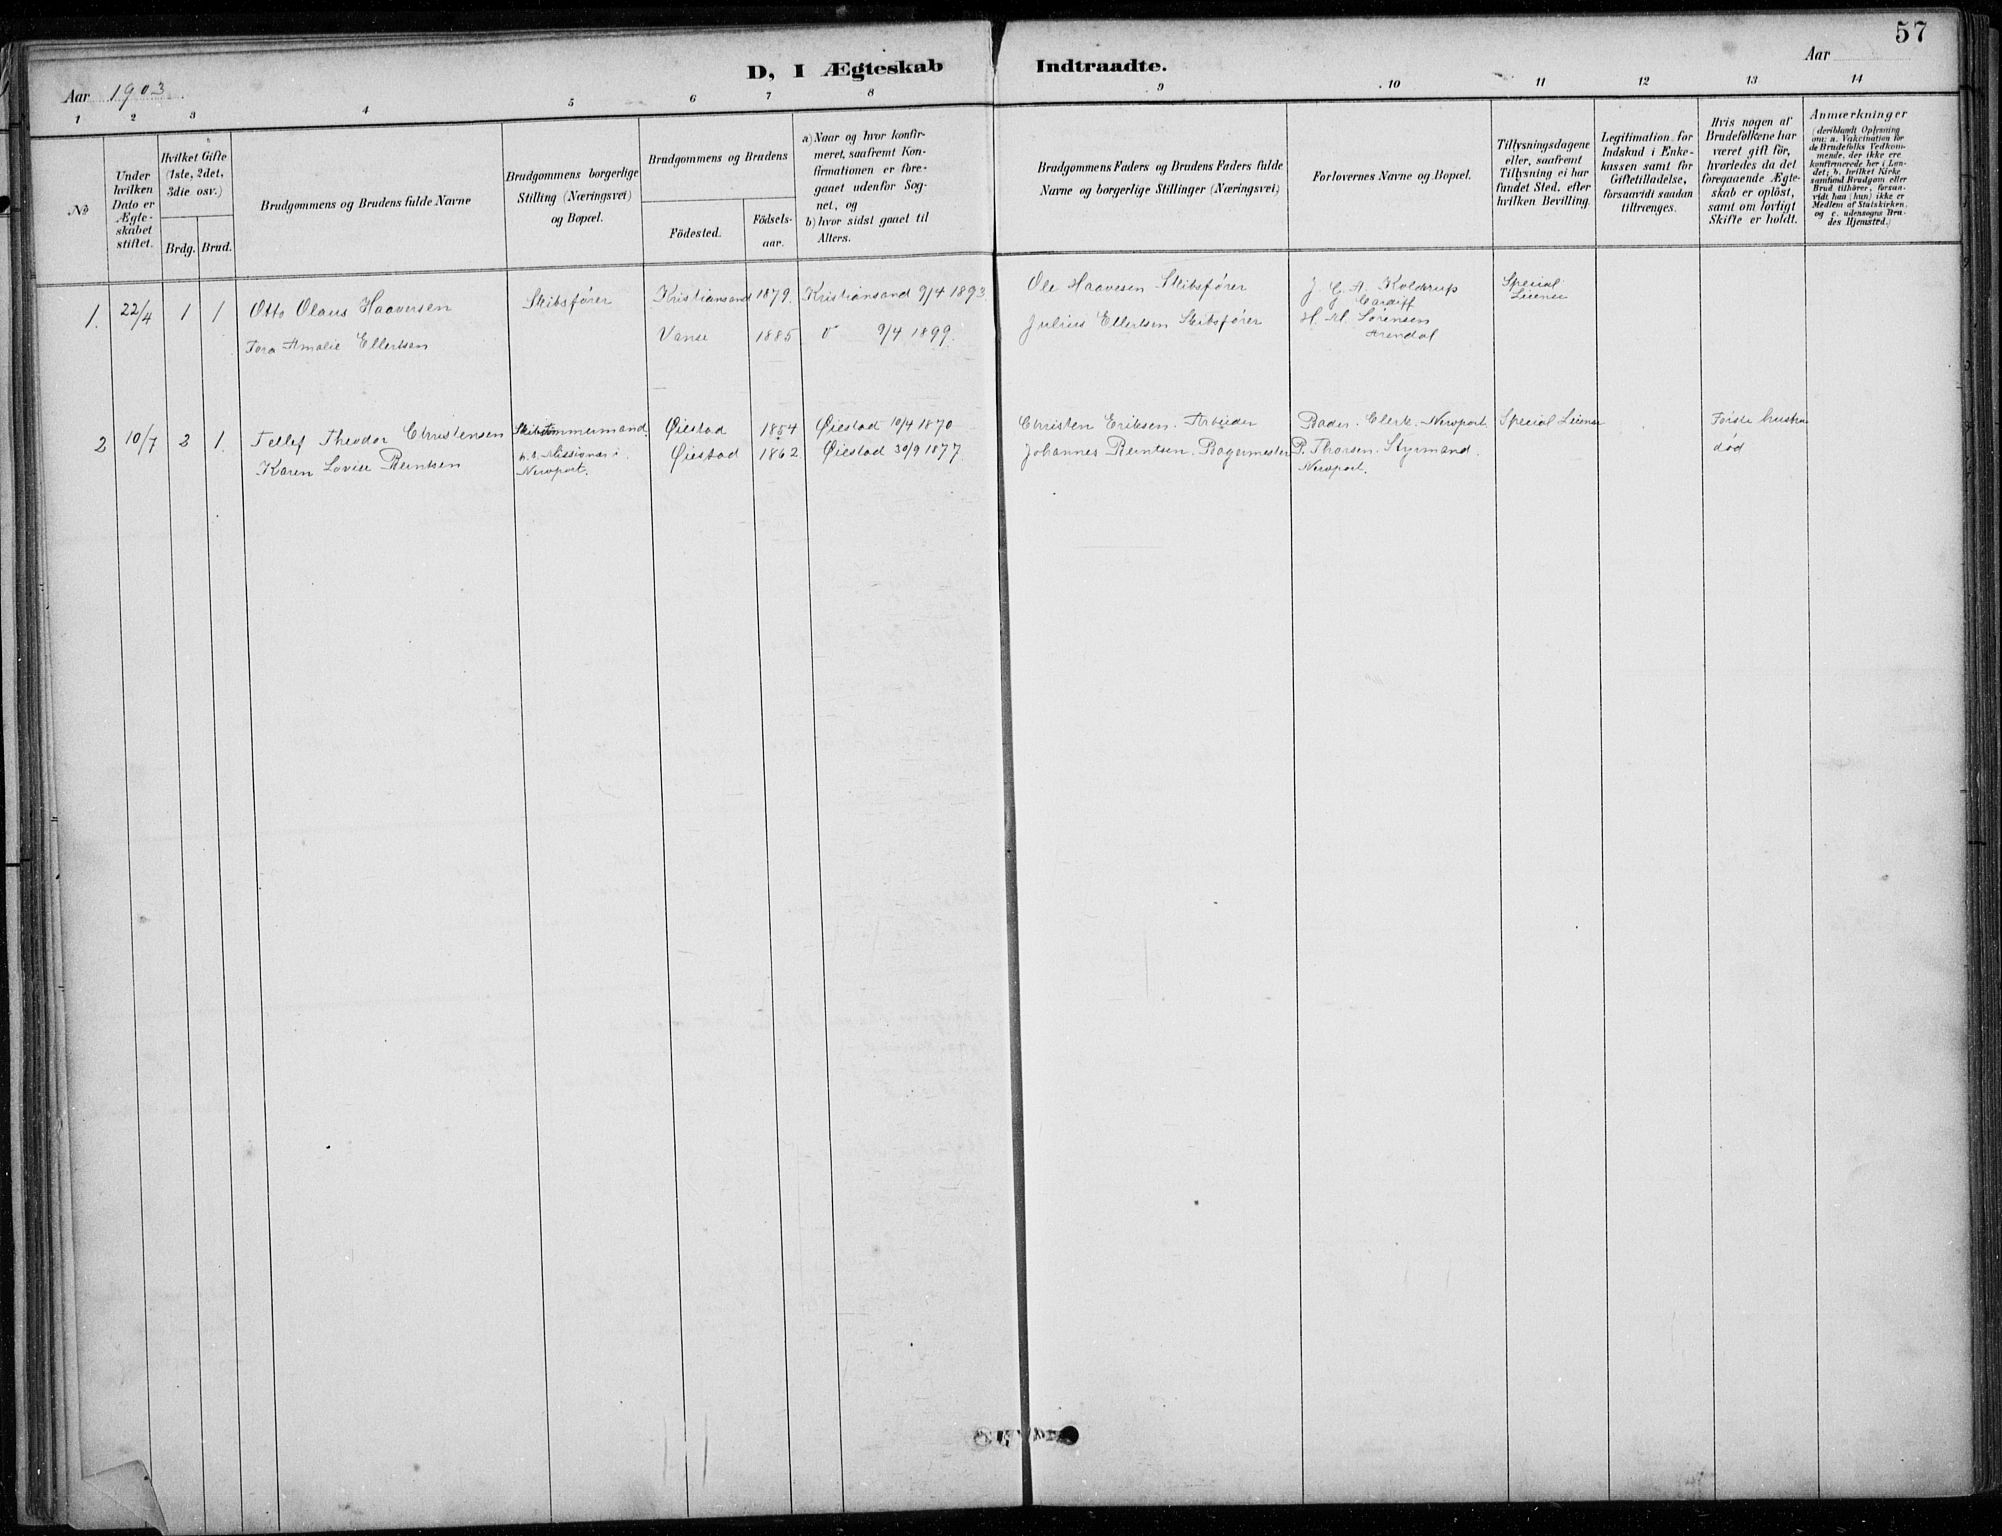 57
D, I Ægteskab Indtraadte.
Aar 1903
Aar
1 2 3 4 5 6 7 8 9 10 11 12 13 14
No
Under hvilken Dato er Ægteskabet stiftet.
Hvilket Gifte (1ste, 2det, 3die osv.)
Brdg. Brud.
Brudgommens og Brudens fulde Navne
Brudgommens borgerlige Stilling (Næringsvei) og Bopæl.
Brudgommens og Brudens
Födested.
Födselsaar.
a) Naar og hvor konfirmeret, saafremt Konfirmationen er foregaaet udenfor Sognet, og
b) hvor sidst gaaet til Alters.
Brudgommens Faders og Brudens Faders fulde Navne og borgerlige Stillinger (Næringsvei)
Forlovernes Navne og Bopæl.
Tillysningsdagene eller, saafremt Tillysning ei har fundet Sted, efter hvilken Bevilling.
Legitimation for Indskud i Enkekassen samt for Giftetilladelse, forsaavidt saadan tiltrænges.
Hvis nogen af Brudefolkene har været gift för, hvorledes da det foregaaende Ægteskab er oplöst, samt om lovligt Skifte er holdt.
Anmærkninger
(deriblandt Oplysning om: a. Vakcination for de Brudefolks Vedkommende, der ikke ere konfirmerede her i Landet; b. hvilket Kirkesamfund Brudgom eller Brud tilhörer, forsaavidt han (hun) ikke er Medlem af Statskirken, og c. udensogns Brudes Hjemsted.)
1. 22/4 1 1 Otto Olaus Haaversen Skibsfører Kristiansand 1879. Kristiansand 9/4 1893 Ole Haavesen Skibsfører J. C. A. Kolderup Special
Cardiff Licence
Tora Amalie Ellertsen Vanse 1885 9/4 1899. Julius Ellertsen Skibsfører H. M. Sørensen
Arendal
2 10/7 2 1. Tellef Theodor Christensen Skibstømmermand. Øiestad 1854 Øiestad 10/4 1870 Christen Eriksen. Arbeider Bader. Clerk. Newport. Special Licence Første hustru
Karen Lovise Berntsen Missionær i Øiestad 1862. Øiestad 30/9 1877. Johannes Berntsen. Bagermester P. Thorsen. Styrmand. død
Newport. Newport.